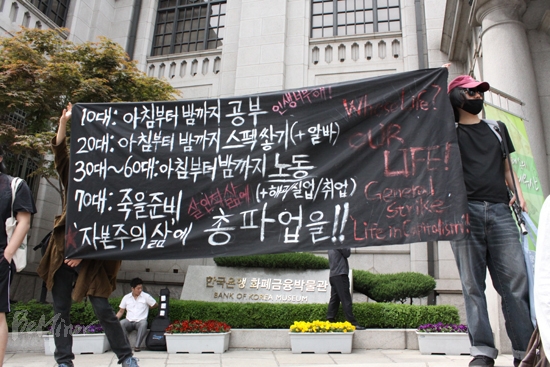 10대: 아침부터 밤까지 공부
20대: 아침부터 밤까지 스펙쌓기(+알바)
30대~60대: 아침부터 밤까지 노동
(+해고/실업/취업)
70대: 죽을준비
자본주의 삶에 총파업을!!
Whose Life?
OUR
LIFE!
General
Strike!
Life in Capitalism!!
한국은행 화폐금융박물관
BANK OF KOREA MUSEUM